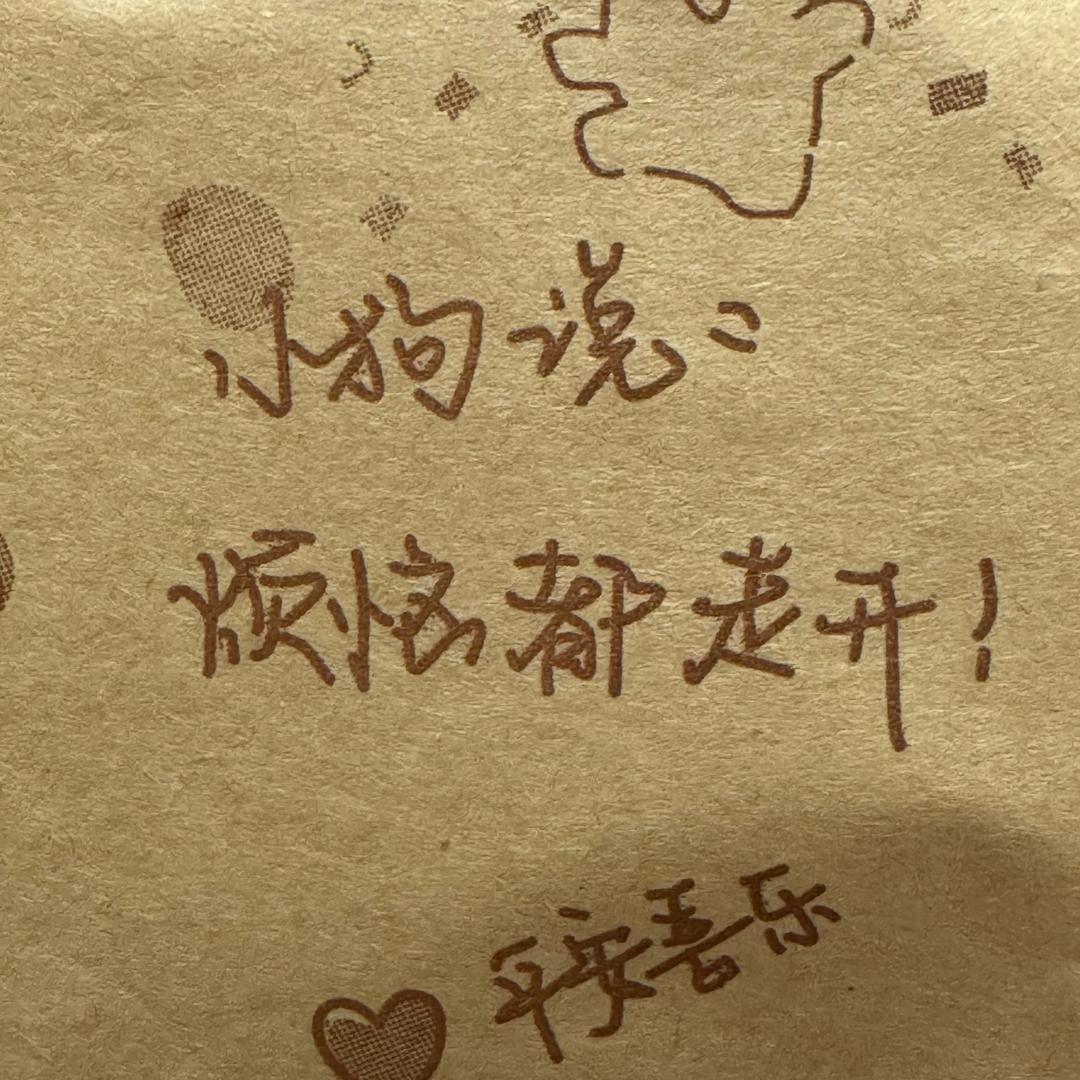 小狗说：
烦恼都走开！
平安喜乐